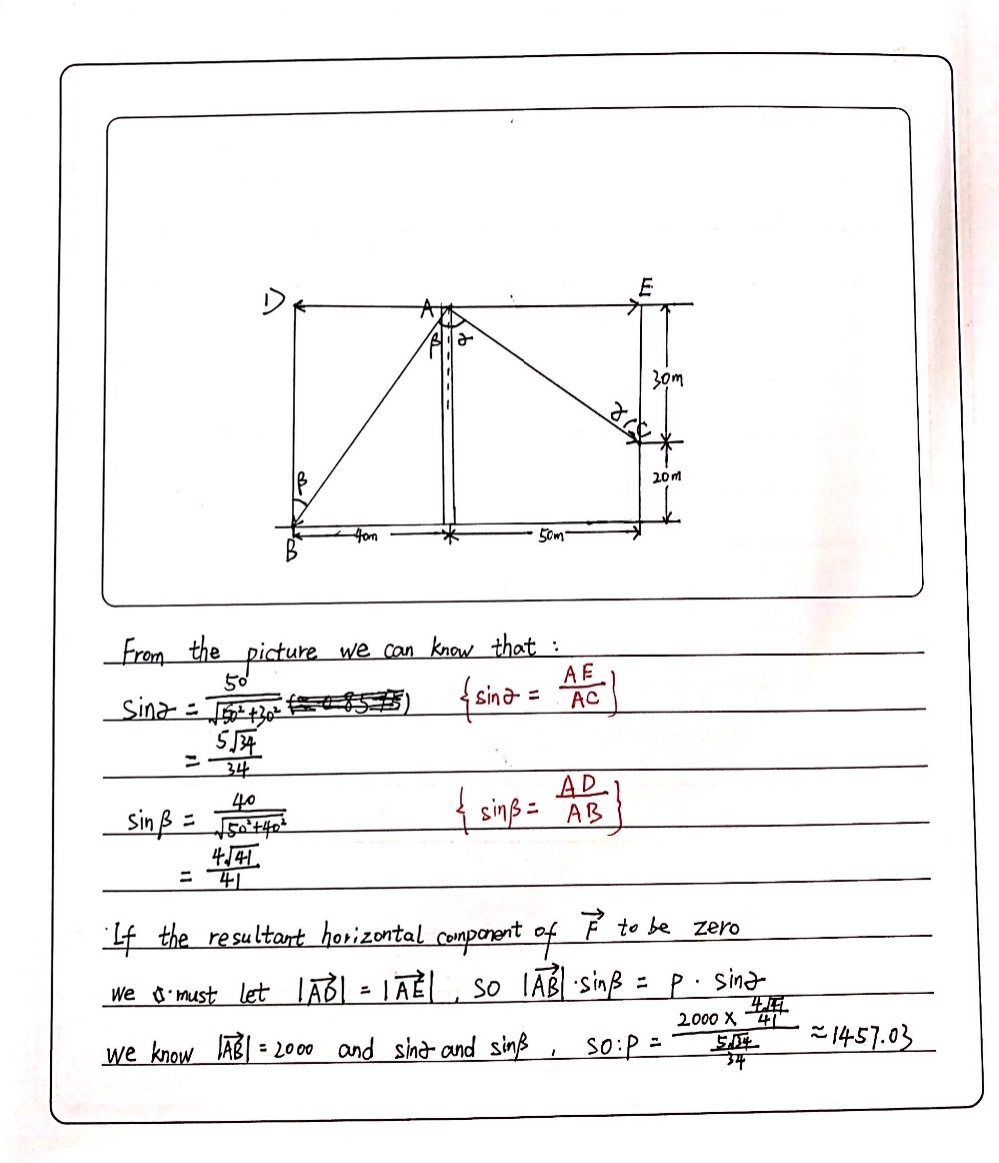 D A E
β ∂
30m
∂ C
β 20m
B 40m 50m
From the picture we can know that :
sin∂ = 50/√(50²+30²) {sin∂ = AE/AC}
= 5√34/34
sinβ = 40/√(50²+40²) {sinβ = AD/AB}
= 4√41/41
If the resultant horizontal component of F⃗ to be zero
we must let |AD⃗| = |AE⃗| , so |AB⃗|·sinβ = P · sin∂
we know |AB⃗| = 2000 and sin∂ and sinβ , so:P = (2000 × 4√41/41)/(5√34/34) ≈ 1457.03